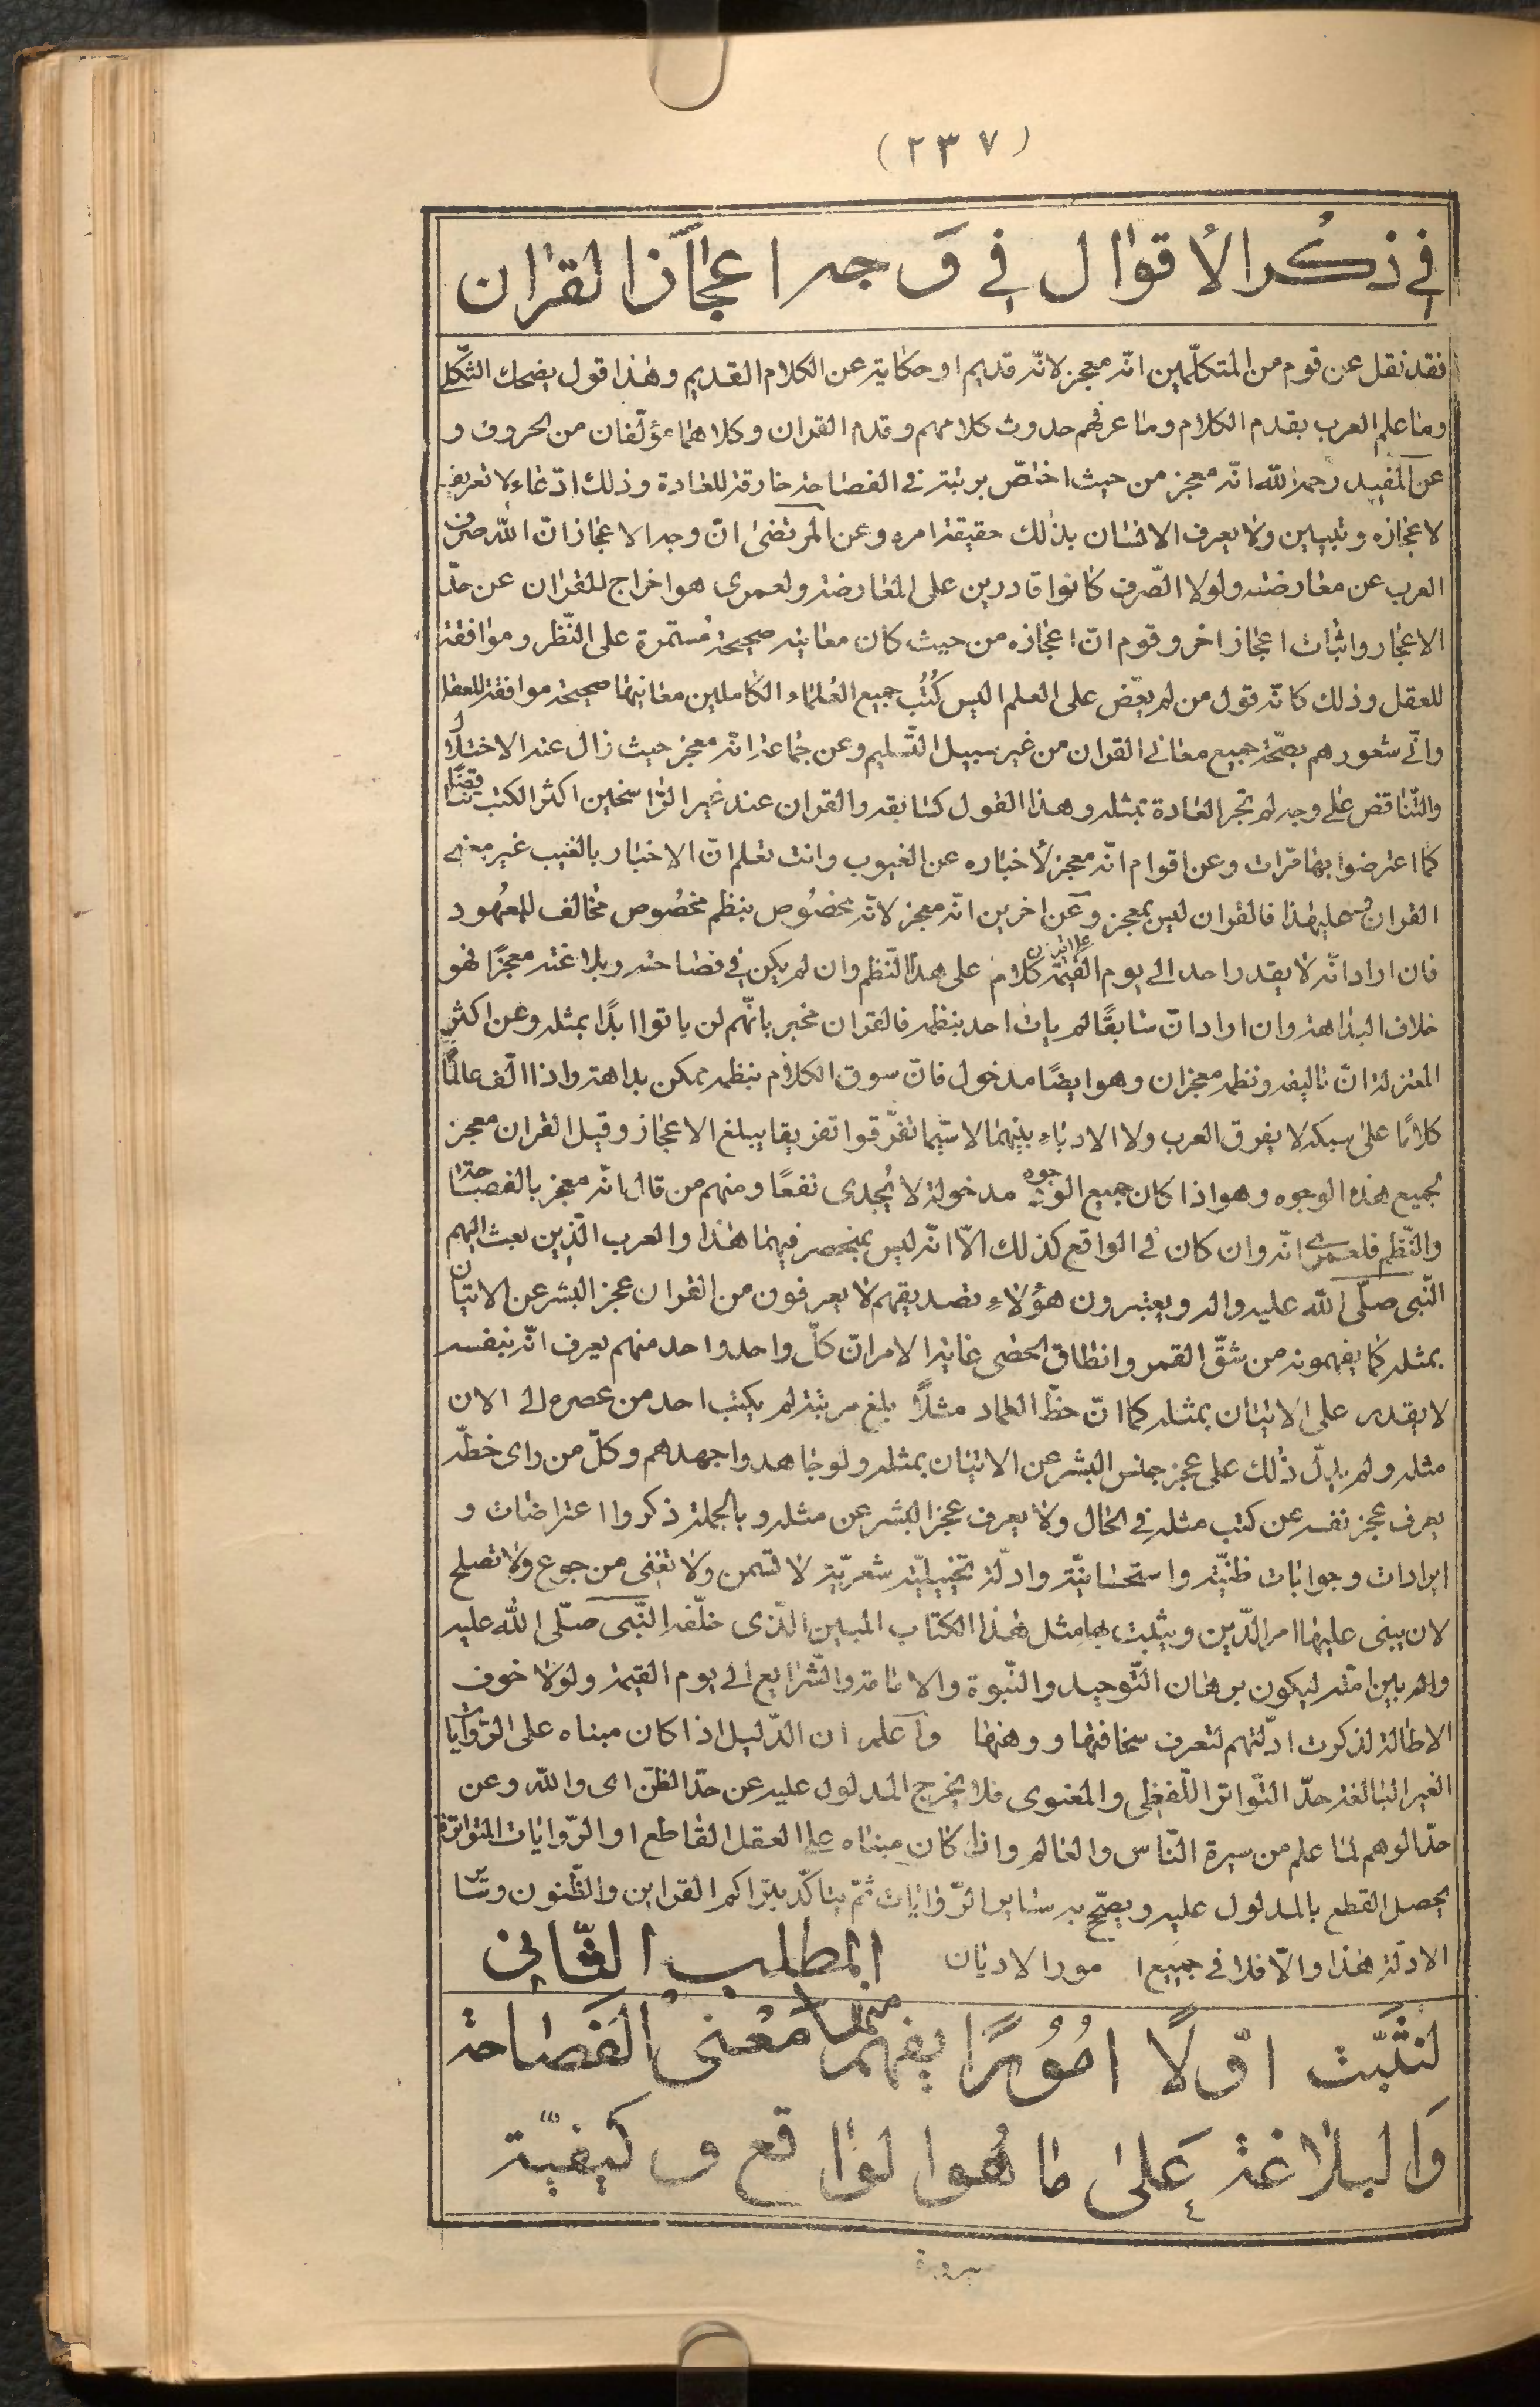 (٢٣٧)
في ذكر الأقوال في وجه اعجاز القران
فقد نقل عن قوم من المتكلّمين انّه معجز لانّه قديم او حكاية عن الكلام القديم وهذا قول يضحك الثكلى
وما علم العرب بقدم الكلام وما عرفهم حدوث كلامهم وقدم القران وكلاهما مؤلّفان من الحروف و
عن المفيد رحمه الله انّه معجز من حيث اختصّ برتبة في الفصاحة خارقة للعادة وذلك ادّعاء لا تعريف
لاعجازه وتبيين ولا يعرف الانسان بذلك حقيقة امره وعن المرتضى انّ وجه الاعجاز انّ الله صرف
العرب عن معارضته ولولا الصّرف كانوا قادرين على المعارضة ولعمرى هو اخراج للقران عن حدّ
الاعجاز واثبات اعجاز اخر وقوم انّ اعجازه من حيث كان معانيه صحيحة مستمرّة على النّظر وموافقة
للعقل وذلك كانّه قول من لم يعضّ على العلم اليس كُتُب جميع العلماء الكاملين معانيها صحيحة موافقة للعقل
وانّى شعورهم بصحّة جميع معاني القران من غير سبيل التّسليم وعن جماعة انّه معجز حيث زال عنه الاختلاف
والتّناقض على وجه لم تجر العادة بمثله وهذا القول كسابقه والقران عند غير الرّاسخين اكثر الكتب تناقضًا
كما اعترضوا بها مرّات وعن اقوام انّه معجز لأخباره عن الغيوب وانت تعلم انّ الاخبار بالغيب غير معنى
القران فعليهذا فالقران ليس بمعجز وعن اخرين انّه معجز لانّه مخصُوص بنظم مخصُوص مخالف للمعهُود
فان اراد انّه لا يقدر احد الى يوم القيمة على اتيان كلام على هذا النّظم وان لم يكن في فصاحته وبلاغته معجزًا فهو
خلاف البداهة وان اراد انّ سابقًا لم يات احد بنظمه فالقران مخبر بانّهم لن ياتوا ابدًا بمثله وعن اكثر
المعتزلة انّ تاليفه ونظمه معجزان وهو ايضًا مدخول فانّ سوق الكلام بنظمه ممكن بداهة واذا الّف عالم
كلامًا على سبكه لا يفرق العرب ولا الادباء بينهما لا سيّما تفرّقوا تفريقا يبلغ الاعجاز وقيل القران معجز
بجميع هذه الوجوه وهو اذا كان جميع الوجوه مدخولة لا يُجدى نفعًا ومنهم من قال انّه معجز بالفصاحة
والنّظم فلعمرى انّه وان كان في الواقع كذلك الّا انّه ليس بمنحصر فيهما هذا والعرب الّذين بعث اليهم
النّبى صلّى الله عليه واله ويعتبرون هؤلاء تصديقهم لا يعرفون من القران عجز البشر عن الاتيان
بمثله كما يفهمونه من شقّ القمر وانطاق الحصى غاية الامر انّ كلّ واحد واحد منهم يعرف انّه بنفسه
لا يقدر على الاتيان بمثله كما انّ خطّ العماد مثلًا بلغ مرتبة لم يكتب احد من عصره الى الان
مثله ولم يدلّ ذلك على عجز جنس البشر عن الاتيان بمثله ولو جاهدوا جهدهم وكلّ من راى خطّه
يعرف عجز نفسه عن كتب مثله في الحال ولا يعرف عجز البشر عن مثله و بالجملة ذكروا اعتراضات و
ايرادات وجوابات ظنيّة واستحسانيّة وادلّة تخييليّة شعريّة لا تسمن ولا تغنى من جوع ولا تصلح
لان يبنى عليها امر الدّين ويثبت بها مثل هذا الكتاب المبين الّذى خلّفه النّبى صلّى الله عليه
واله بين امّته ليكون برهان التّوحيد والنّبوة والامامة والشّرايع الى يوم القيمة ولولا خوف
الاطالة لذكرت ادلّتهم لتعرف سخافتها ووهنها واعلم ان الدّليل اذا كان مبناه على الرّوايات
الغير البالغة حدّ التّواتر اللّفظى والمعنوى فلا يخرج المدلول عليه عن حدّ الظنّ اى والله وعن
حدّ الوهم لما علم من سيرة النّاس والعالم واذا كان مبناه على العقل القاطع او الرّوايات المتواترة
يحصل القطع بالمدلول عليه ويصحّح به ساير الرّوايات ثمّ يتاكّد بتراكم القراين والظّنون وساير
الادلّة هذا والّا فلا في جميع امور الاديان المطلب الثّاني
لنثبّت اوّلًا امُورًا يفهم منها معنى الفصاحة
والبلاغة على ما هو الواقع وكيفيّة